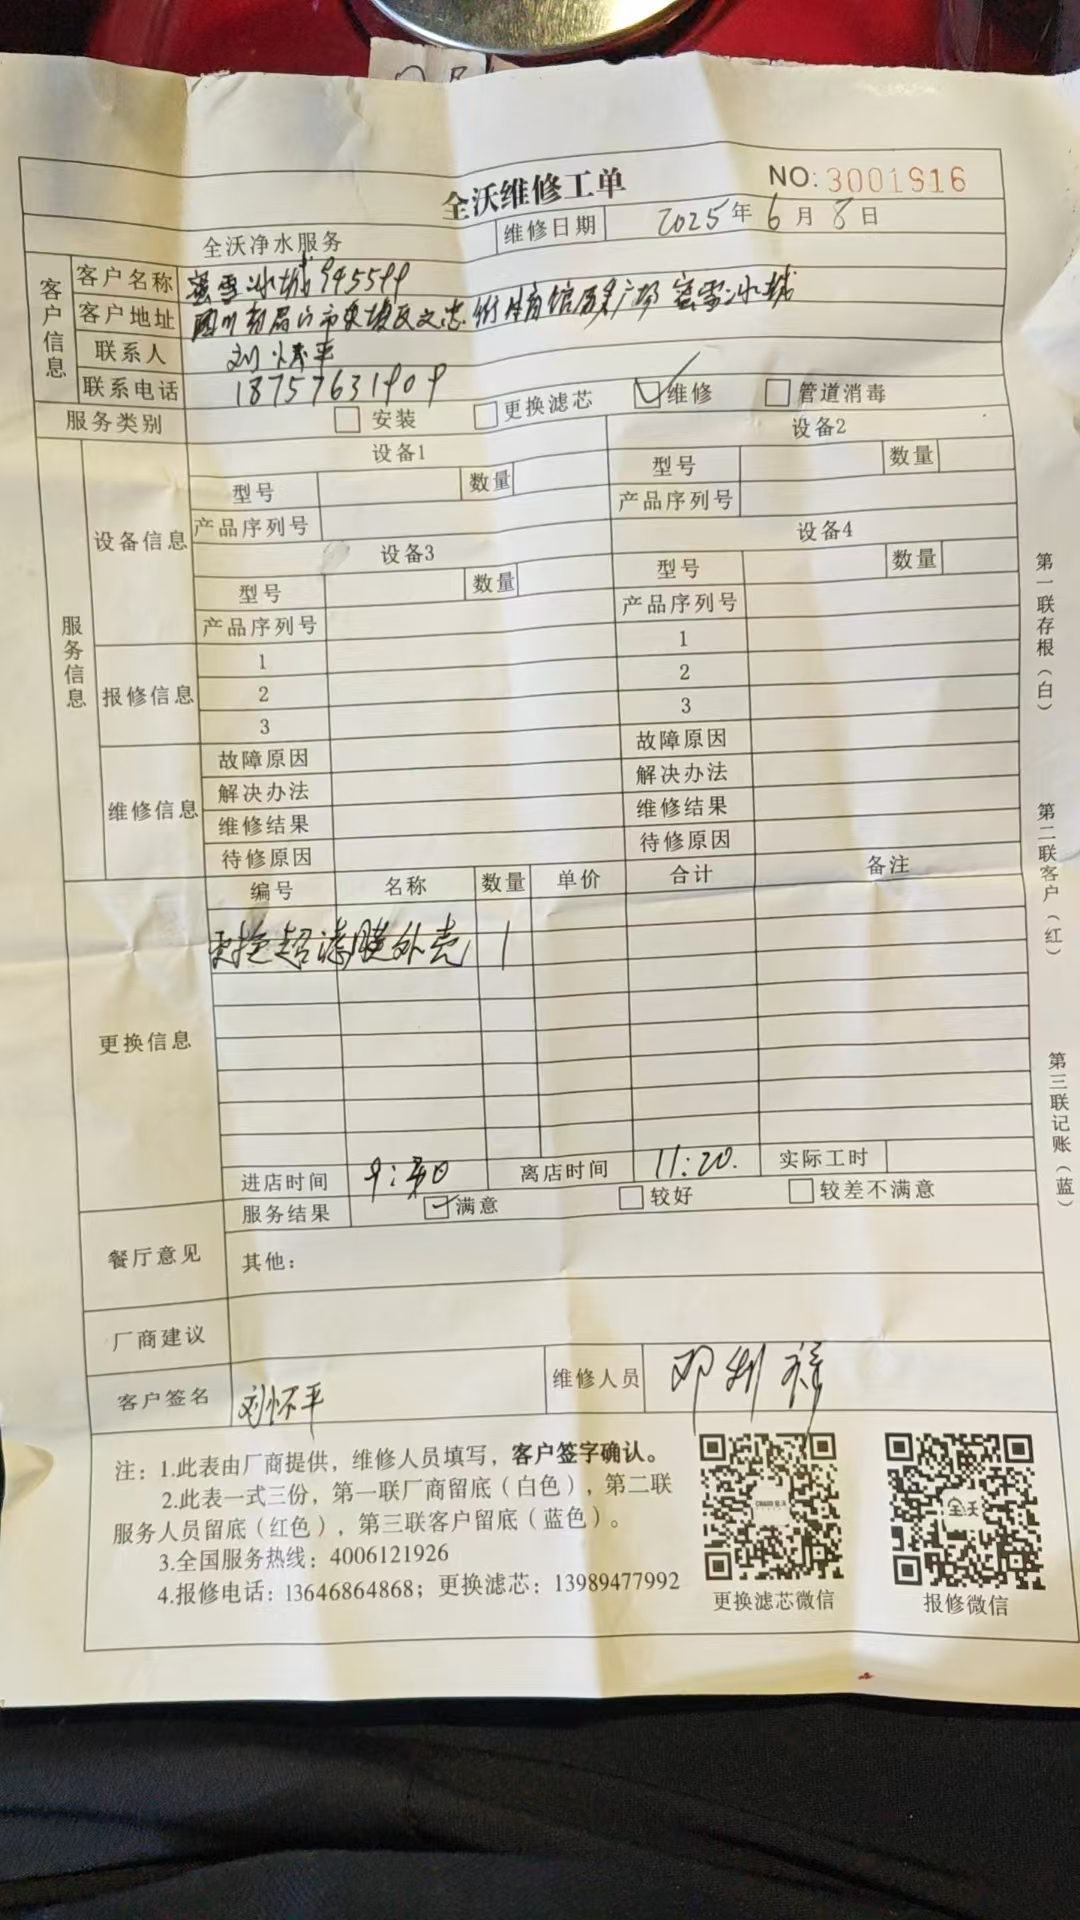 全沃维修工单
NO:3001916
全沃净水服务 维修日期 2025年6月8日
客户信息
客户名称 蜜雪冰城945599
客户地址 四川 市东坡区文忠街体育馆 广场 蜜雪冰城
联系人 刘怀平
联系电话 18757631909
服务类别 安装 更换滤芯 维修 管道消毒
服务信息
设备信息
设备1 设备2
型号 数量 型号 数量
产品序列号 产品序列号
设备3 设备4
型号 数量 型号 数量
产品序列号 产品序列号
报修信息
1 1
2 2
3 3
维修信息
故障原因 故障原因
解决办法 解决办法
维修结果 维修结果
待修原因 待修原因
更换信息
编号 名称 数量 单价 合计 备注
更换超滤膜外壳 1
进店时间 9:30 离店时间 11:20. 实际工时
餐厅意见
服务结果 满意 较好 较差不满意
其他:
厂商建议
客户签名 刘怀平 维修人员 邓利
注: 1.此表由厂商提供, 维修人员填写, 客户签字确认。
2.此表一式三份, 第一联厂商留底(白色), 第二联
服务人员留底(红色), 第三联客户留底(蓝色)。
3.全国服务热线: 4006121926
4.报修电话: 13646864868; 更换滤芯: 13989477992
更换滤芯微信
全沃
报修微信
第一联存根(白)
第二联客户(红)
第三联记账(蓝)